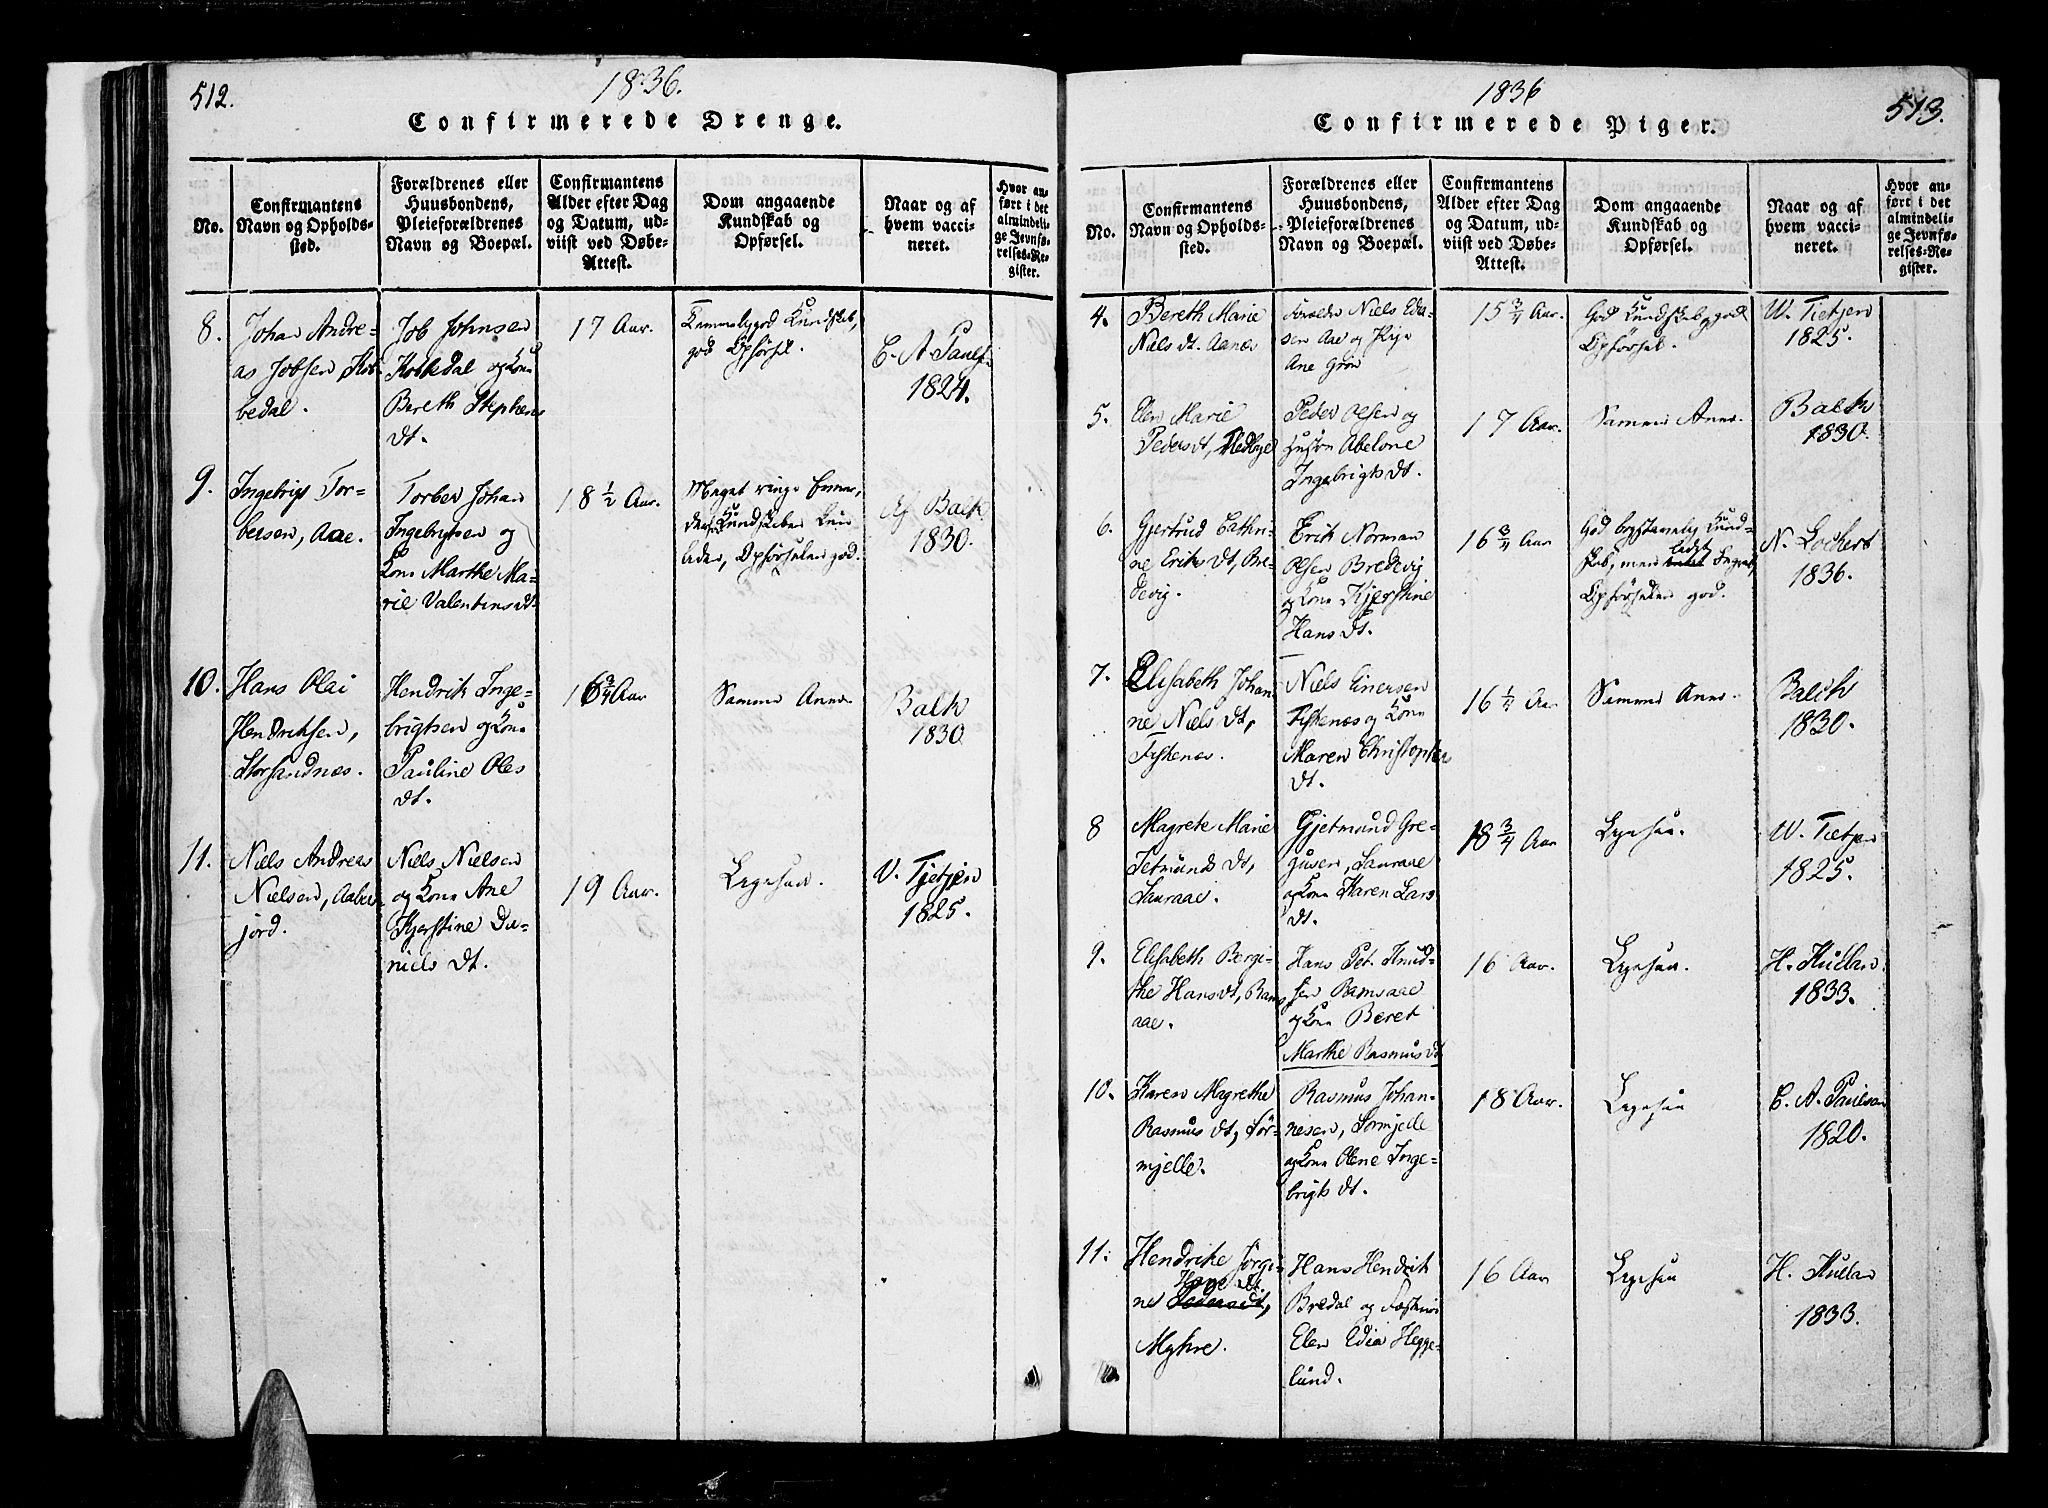 512.
1836.
Confirmerede Drenge.
No.
Confirmantens
Navn og Opholds-
sted.
Forældrenes eller
Huusbondens,
Pleieforældrenes
Navn og Boepæl.
Confirmantens
Alder efter Dag
og Datum, ud-
viist ved Døbe-
Attest.
Dom angaaende
Kundskab og
Opførsel.
Naar og af
hvem vacci-
neret.
Hvor an-
ført i det
almindeli-
ge Jevnfø-
relses-Re-
gister.
8.
Johan Andre-
as Jobsen,
bedal.
Job Johnsen
og Kone
Bereth Stephens
dt.
17 Aar.
god Kundskab,
god Opførsel.
C. A. Pauls
1824.
9.
Ingebrigt Tor-
bersen, Aae.
Torber Johan
Ingebrigtsen og
Kone Marthe Ma-
rie Valentinsdt.
18 1/2 Aar.
Meget ringe
Kundskaber
Opførselen god.
Af Balk
1830.
10.
Hans Olai
Hendriksen,
Storsandnæs.
Hendrik Inge-
brigtsen og Kone
Pauline Oles
dt.
16 3/4 Aar
Samme Anm.
Balk
1830
11.
Niels Andreas
Nielsen, Aaber-
jord.
Niels Nielsen
og Kone Ane
Kjerstine Da-
niels dt.
19 Aar.
Ligesaa.
V. Tjetjen
1825.
1836
513.
Confirmerede Piger.
No.
Confirmantens
Navn og Opholds-
sted.
Forældrenes eller
Huusbondens,
Pleieforældrenes
Navn og Boepæl.
Confirmantens
Alder efter Dag
og Datum, ud-
viist ved Døbe-
Attest.
Dom angaaende
Kundskab og
Opførsel.
Naar og af
hvem vacci-
neret.
Hvor an-
ført i det
almindeli-
ge Jevnfø-
relses-Re-
gister.
4.
Bereth Marie
Niels dt. Aanæs
Niels Edia-
sen Aae og Pige
Ane Grøn
15 3/4 Aar.
God Kundskab, god
Opførsel.
W. Tietjen
1825.
5.
Elen Marie
Pedersdt, Nedbye
Peder Olsen og
Hustru Abelone
Ingebrigts dt.
17 Aar.
Samme Anm.
Balck
1830.
6.
Gjertrud Cathri-
ne Eriks dt, Bre-
devig.
Erik Norman
Olsen Bredevig
og Kone Kjerstine
Hans dt.
16 3/4 Aar
God bogstavelig Kund-
skab, men
Opførselen god.
N. Lochert
1836.
7.
Elisabeth Johan-
ne Niels dt,
Fiskenæs.
Niels Einersen
Fiskenæs og Kone
Maren Christopher
dt.
16 1/4 Aar
Samme Anm.
Balch
1830.
8
Magrete Marie
Jetmunds dt,
Lauraae.
Gjetmund Gre-
gusen, Lauraae
og Kone Karen Lars
dt.
18 3/4 Aar
Ligesaa.
W. Tietjen
1825.
9.
Elisabeth Bergi-
the Hansdt, Rams
aae.
Hans Pet. Knud-
sen Ramsaae
og Kone Beret
Marthe Rasmusdt
16 Aar.
Ligesaa.
H. Kullan
1833.
10.
Karen Magrethe
Rasmus dt, Sør-
mjelle.
Rasmus Johan-
nesen, Sørmjelle
og Kone Olene Inge-
brigts dt.
18 Aar.
Ligesaa
C. A. Paulsen
1820.
11.
Hendrike Jørgi-
Hans dt.
ne Pedersdt,
Myhre.
Hans Hendrik
Bredal og
Elen Edia Hegge-
lund.
16 Aar
Ligesaa
H. Kullan
1833.